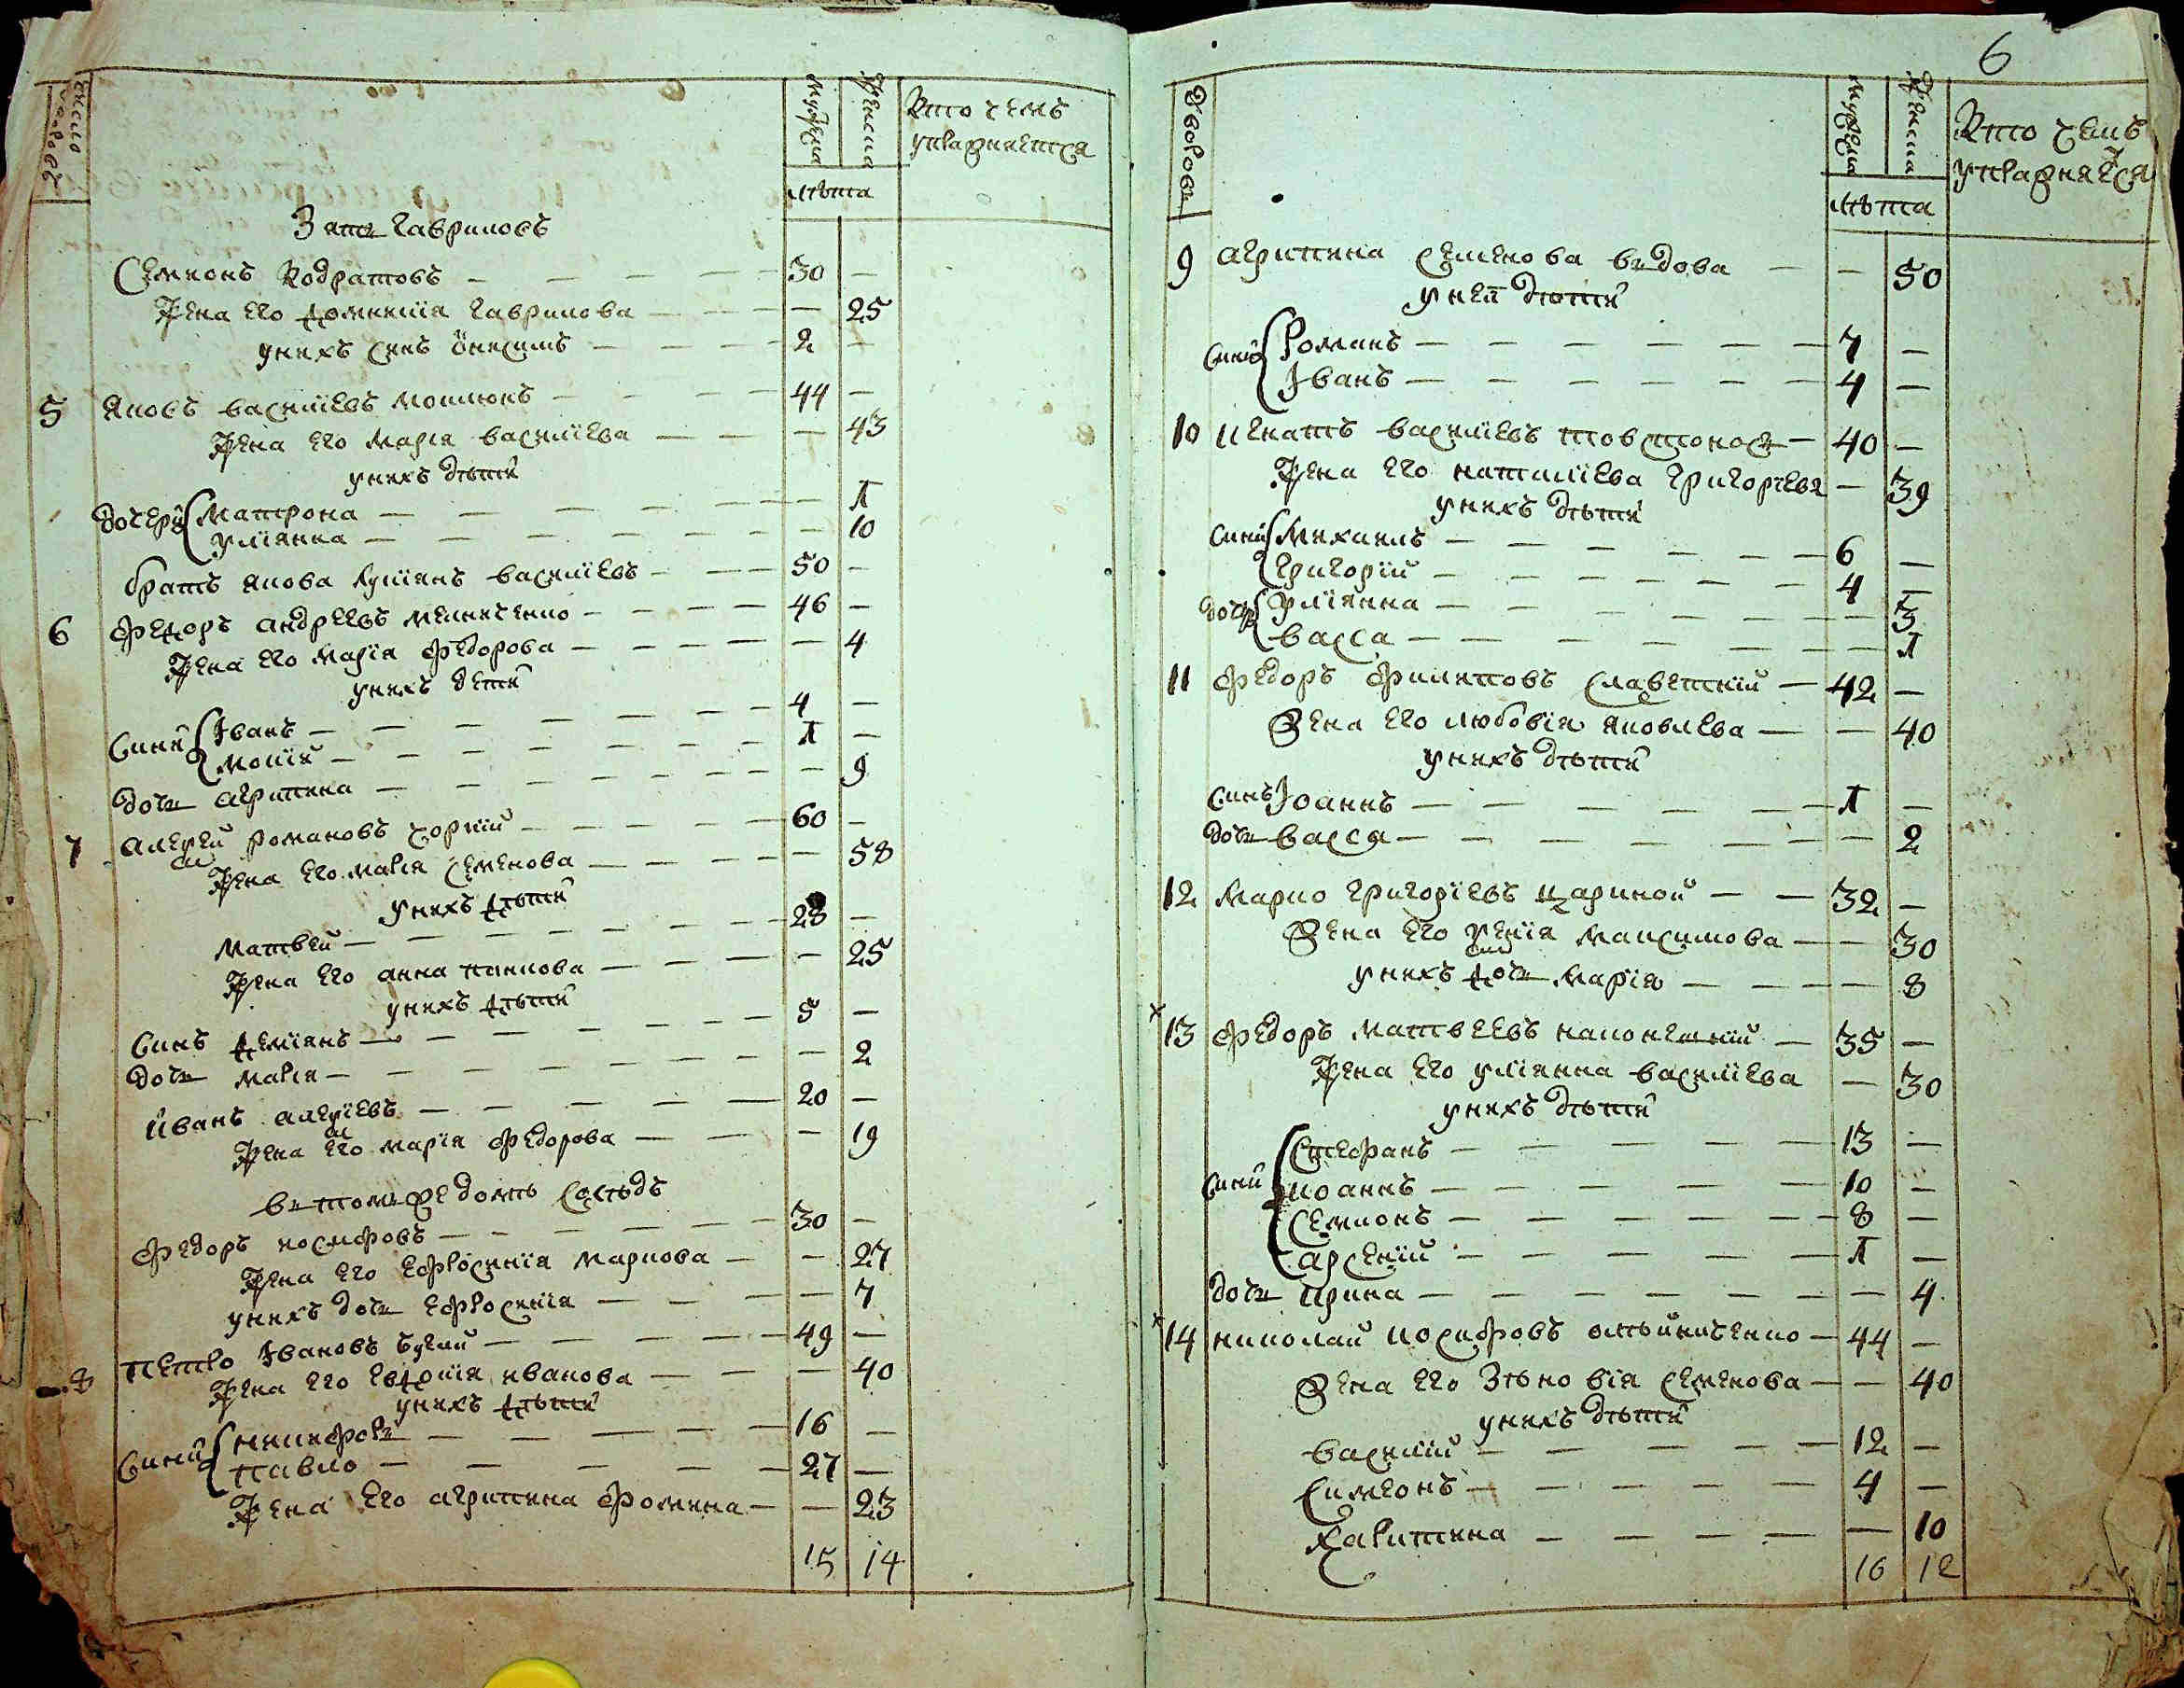 число дворовъ
мужеска
женска
лѣта
Кто чемъ
упражняется
Зять Гавриловъ
Семионъ Кодратовъ — 30 —
Жена его Домникія Гаврилова — — 25
у нихъ синъ Онисимъ — 2 —
5 Яковъ Василіевъ — 44 —
Жена его Марія Василіева — — 43
у нихъ дѣти
дочери Матрона — — 1
Уліянна — — 10
братъ Якова Лукіянъ Василіевъ — 50 —
6 Федоръ Андреевъ — 46 —
Жена его Марія Федорова — — 4
у нихъ дети
Сини Іванъ — 4 —
Мокій — 1 —
дочь Агрипина — — 9
7 Алексей Романовъ Чорній — 60 —
Жена его Марія Семенова — — 58
у нихъ дѣти
Матвей — 28 —
Жена его Анна Панкова — — 25
у нихъ дѣти
Синъ Деміянъ — 5 —
дочь Марія — — 2
Иванъ Алексіевъ — 20 —
Жена его Марія Федорова — — 19
въ томъ же домѣ сосѣдъ
Федоръ Иосифовъ — 30 —
Жена его Ефросинія Маркова — — 27
у нихъ дочь Ефросинія — — 7
8 Петро Івановъ — 49 —
Жена его Евдокія Иванова — — 40
у нихъ дѣти
Сини Никифоръ — 16 —
Павло — 27 —
Жена его Агрипина Фомина — — 23
15 14
6
дворовъ
мужеска
женска
лѣта
Кто чемъ
упражняется
9 Агрипина Семенова вдова — — 50
у нея дѣти
Сини Романъ — 7 —
Іванъ — 4 —
10 Игнатъ Василіевъ Товстоносъ — 40 —
Жена его Наталіева Григоріева — 39
у нихъ дѣти
Сини Михаилъ — 6 —
Григорій — 4 —
дочери Уліянна — — 3
Васса — — 1
11 Федоръ Филиповъ — 42 —
Жена его Любовія Яковлева — — 40
у нихъ дѣти
Синъ Іоаннъ — 1 —
дочь Васса — — 2
12 Марко Григоріевъ — 32 —
Жена его Ксенія Максимова — — 30
у нихъ дочь Марія — — 8
13 Федоръ Матвеевъ — 35 —
Жена его Уліянна Василіева — 30
у нихъ дѣти
Сини Стефанъ — 13 —
Иоаннъ — 10 —
Семионъ — 8 —
Арсеній — 1 —
дочь Ирина — — 4
14 Николай Иосифовъ — 44 —
Жена его Зѣновія Семенова — — 40
у нихъ дѣти
Василій — 12 —
Симеонъ — 4 —
Харитина — — 10
16 12